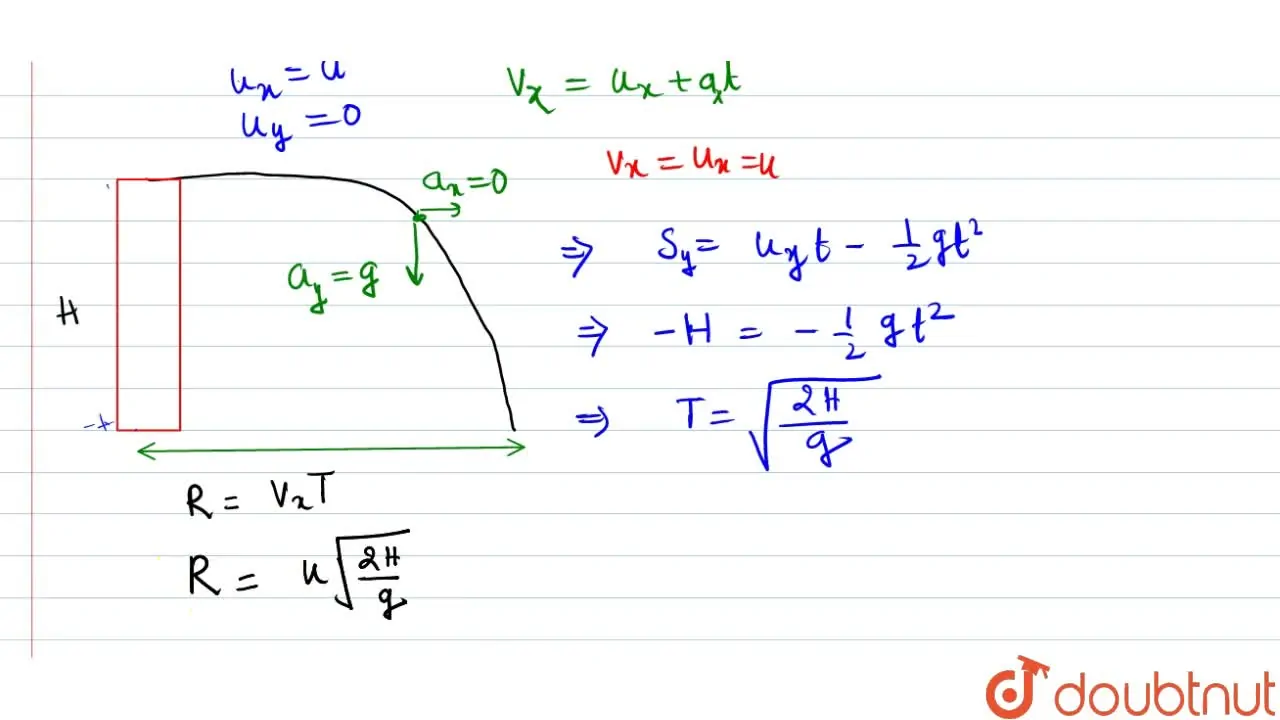 uₓ = u
u_y = 0
Vₓ = uₓ + aₓt
Vₓ = uₓ = u
aₓ = 0
a_y = g
H
⇒ S_y = u_y t - 1/2 gt²
⇒ -H = - 1/2 gt²
⇒ T = √(2H/g)
R = VₓT
R = u√(2H/g)
doubtnut